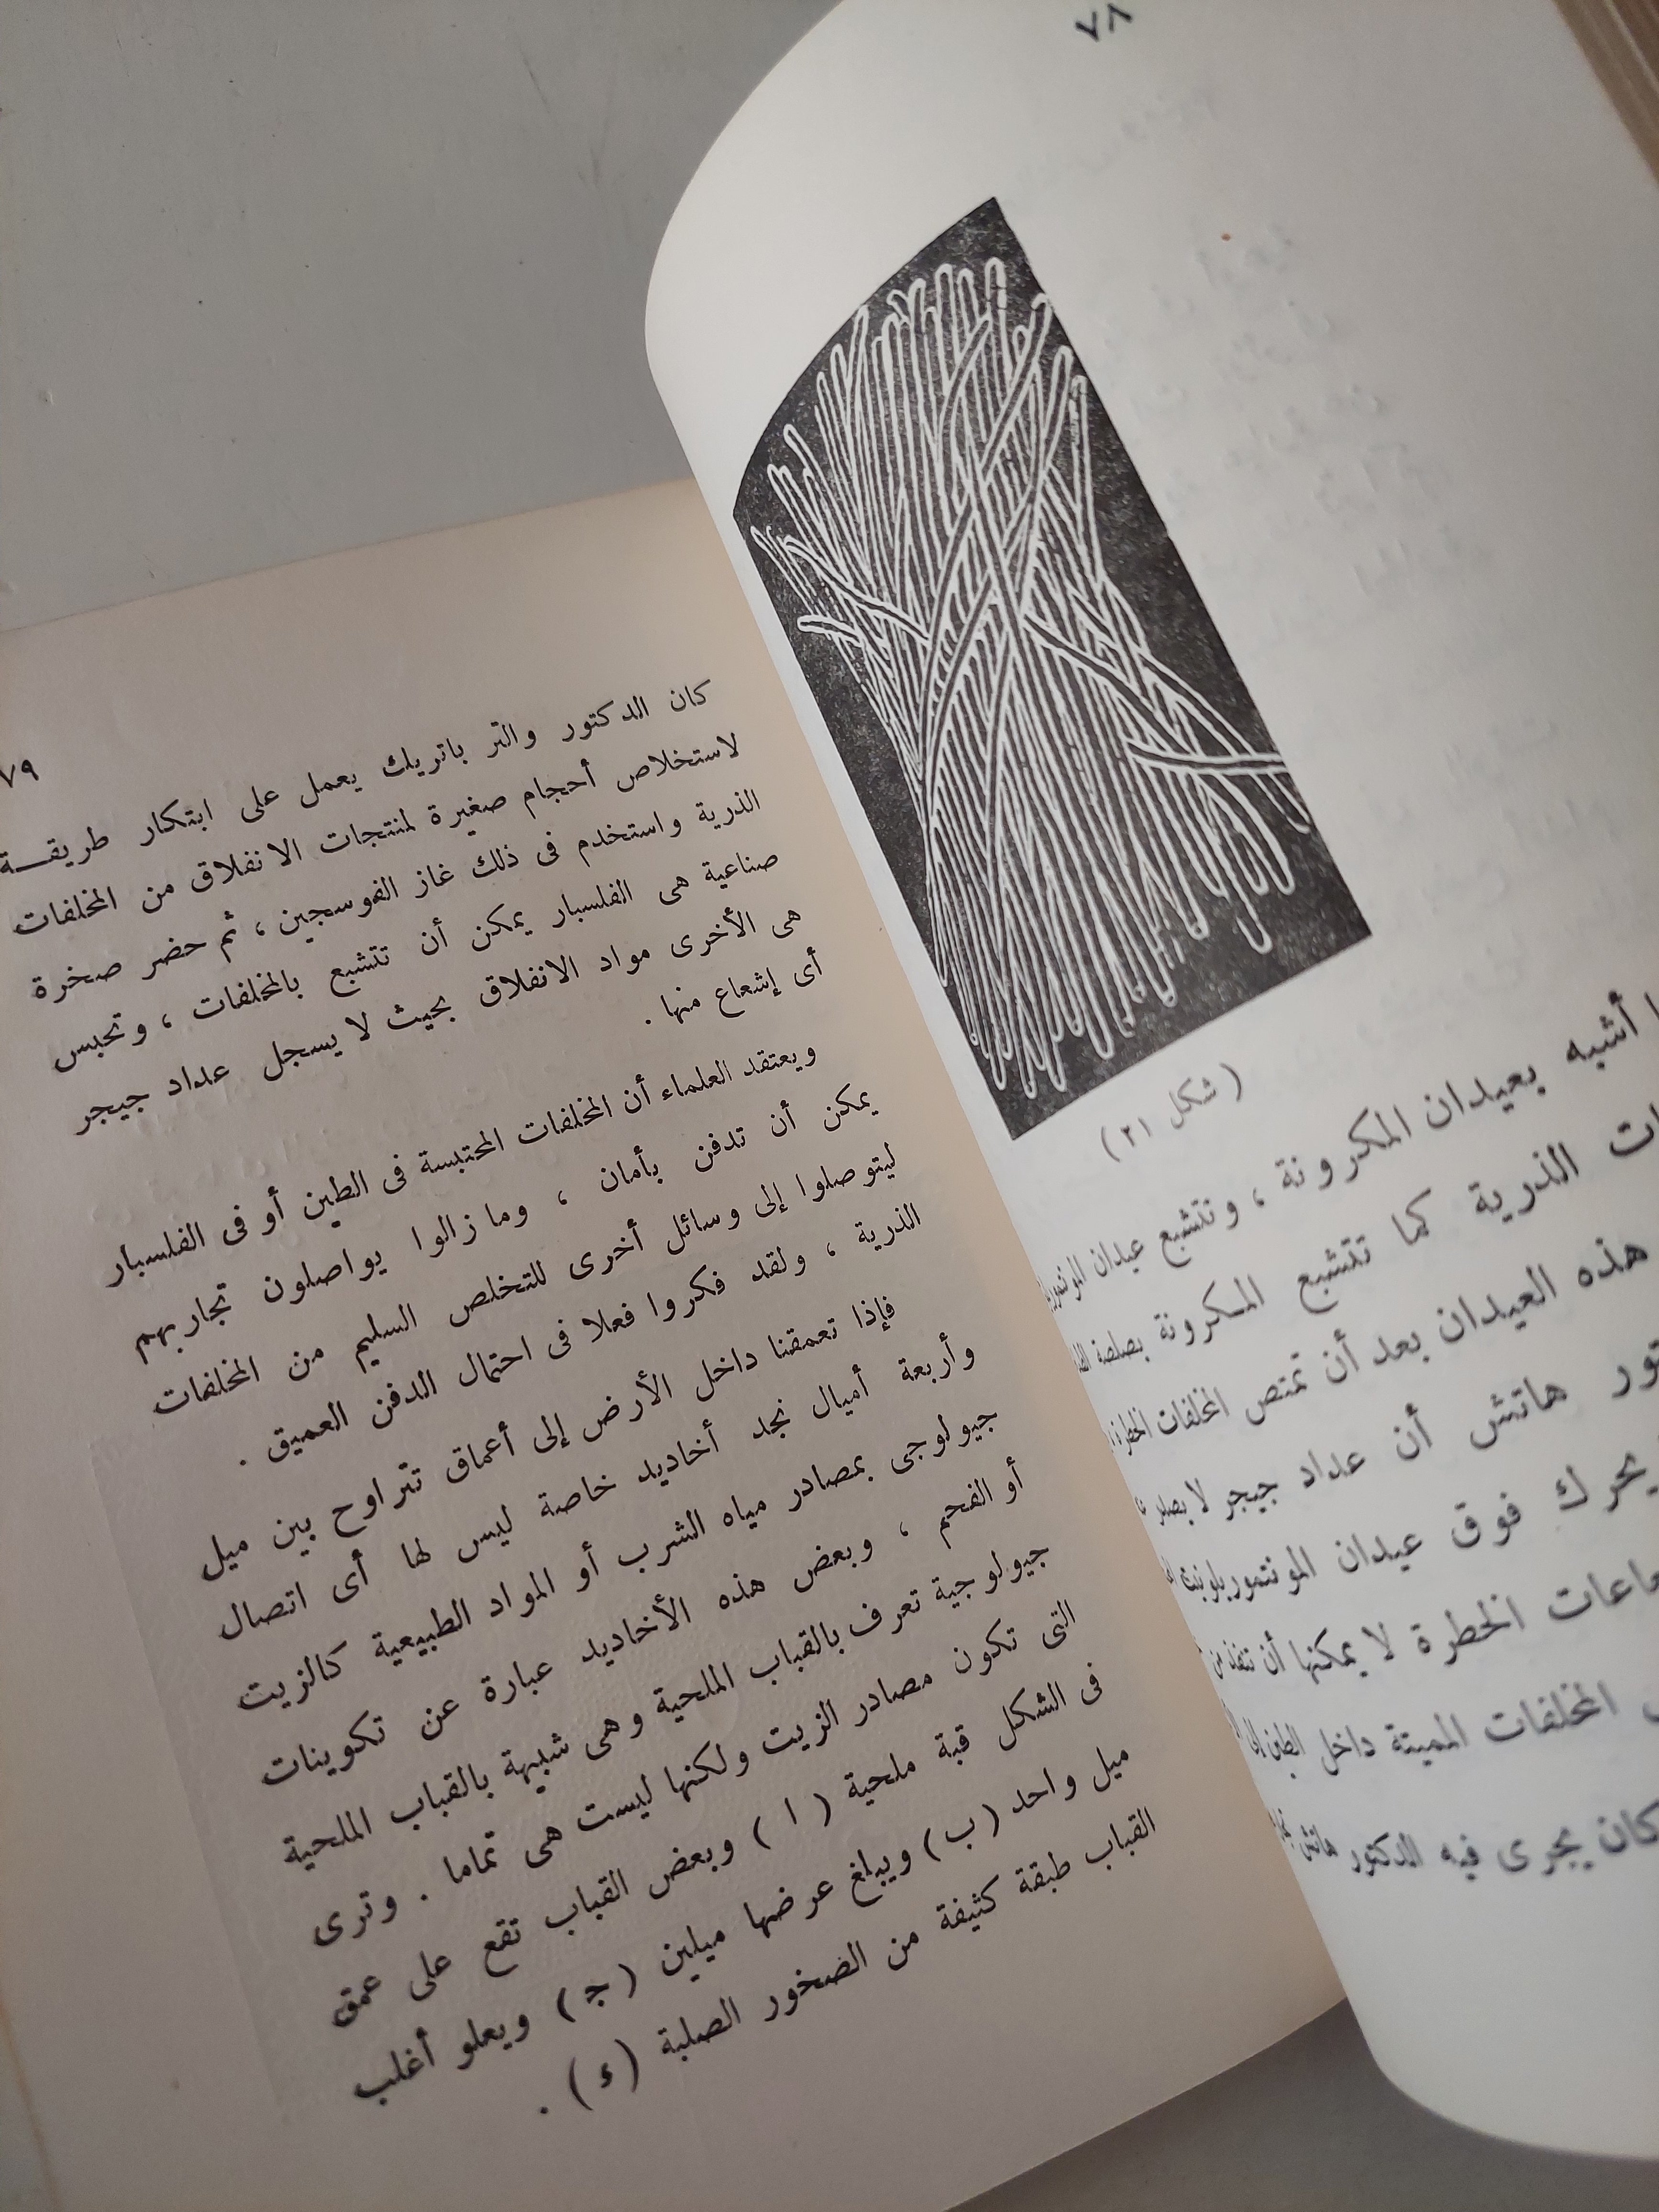 ٧٨
( شكل ٢١ )
أشبه بعيدان المكرونة ، وتتشبع عيدان
الذرية كما تتشبع المكرونة بصلصة
هذه العيدان بعد أن تمتص المخلفات الخطرة
هاتش أن عداد جيجر لا يصدر
يحرك فوق عيدان المونتموريلونيت
الخطرة لا يمكنها أن تنفذ من
المخلفات المميتة داخل الطين إلى
كان يجرى فيه الدكتور هاتش
٧٩
كان الدكتور والتر باتريك يعمل على ابتكار طريقة
لاستخلاص أحجام صغيرة لمنتجات الانفلاق من المخلفات
الذرية واستخدم فى ذلك غاز الفوسجين ، ثم حضر صخرة
صناعية هى الفلسبار يمكن أن تتشبع بالمخلفات ، وتحبس
هى الأخرى مواد الانفلاق بحيث لا يسجل عداد جيجر
أى إشعاع منها .
ويعتقد العلماء أن المخلفات المحتبسة فى الطين أو فى الفلسبار
يمكن أن تدفن بأمان ، وما زالوا يواصلون تجاربهم
ليتوصلوا إلى وسائل أخرى للتخلص السليم من المخلفات
الذرية ، ولقد فكروا فعلا فى احتمال الدفن العميق .
فإذا تعمقنا داخل الأرض إلى أعماق تتراوح بين ميل
وأربعة أميال نجد أخاديد خاصة ليس لها أى اتصال
جيولوجى بمصادر مياه الشرب أو المواد الطبيعية كالزيت
أو الفحم ، وبعض هذه الأخاديد عبارة عن تكوينات
جيولوجية تعرف بالقباب الملحية وهى شبيهة بالقباب الملحية
التى تكون مصادر الزيت ولكنها ليست هى تماما . وترى
فى الشكل قبة ملحية ( ا ) وبعض القباب تقع على عمق
ميل واحد ( ب ) ويبلغ عرضها ميلين ( ج ) ويعلو أغلب
القباب طبقة كثيفة من الصخور الصلبة ( ء ) .